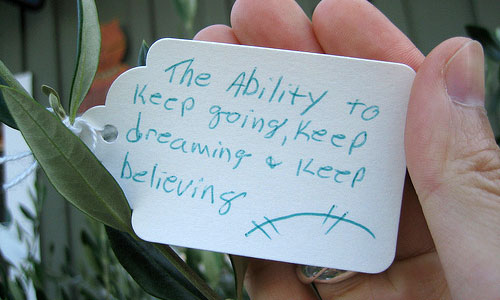 The Ability to
Keep going, Keep
dreaming & Keep
believing